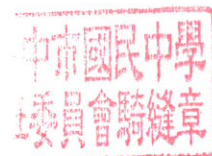 中市國民中學
委員會騎縫章